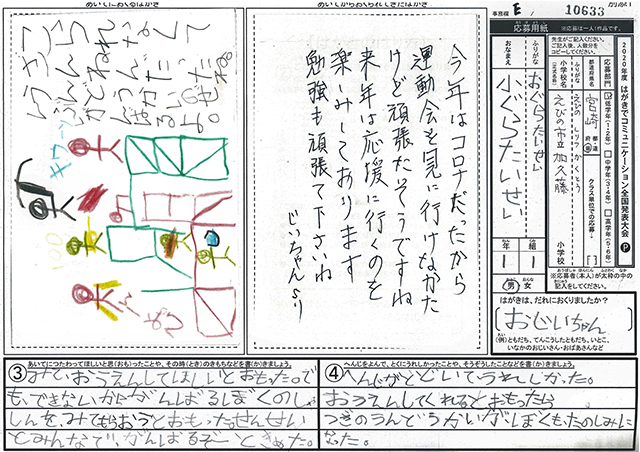 あいてにおくるはがき
あいてからおくられてきたはがき
事務局 E
10633
応募用紙
※応募は一人1作品です。
2020年度 はがきでコミュニケーション全国発表大会 P
応募部門
低学年(1・2年)
中学年(3・4年)
高学年(5・6年)
都道府県名
宮崎
都・道
府・県
クラス単位での応募
小学校名
えびの市立加久藤
小学校
ふりがな
おぐらたいせい
おなまえ
小ぐらたいせい
1年
1組
男
女
※応募者(本人)が太枠の中の
記入をしてください。
はがきは、だれにおくりましたか?
おじいちゃん
(例)ともだち、てんこうしたともだち、いとこ、
いなかのおじいさん・おばあさんなど
今年はコロナだったから
運動会を見に行けなかた
けど頑張たそうですね
来年は応援に行くのを
楽しみしてあります
勉強も頑張て下さいね
じいちゃんより
③
あいてにつたわってほしいと思(おも)ったことや、その時(とき)のきもちなどを書(か)きましょう。
みて、おうえんしてほしいとおもった。で
もできないから、がんばるしぼくのしゃ
しんを、みてもらおうとおもった。せんせい
とみんなで、がんばるぞーときめた。
④
へんじをよんで、とくにうれしかったことや、そうぞうしたことなどを書(か)きましょう。
へんじがとどいてうれしかった。
おうえんしてくれるとおもったら
つぎのうんどうかいがぼくもたのしみに
なった。